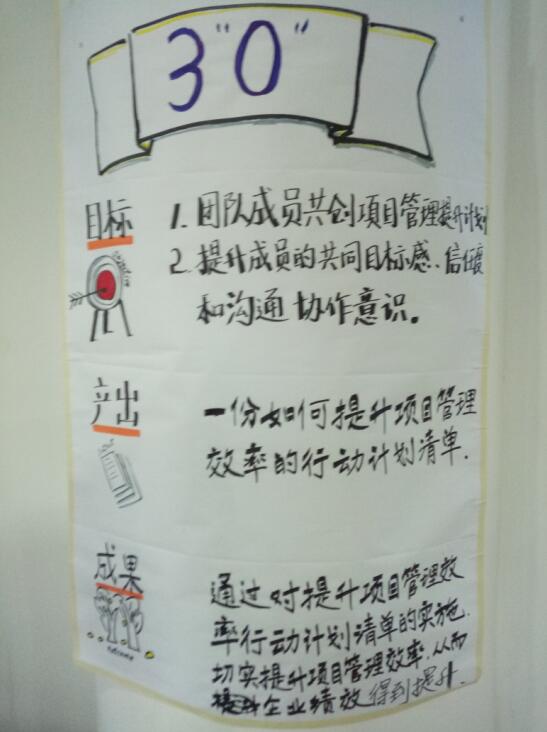 3"0"
目标
1. 团队成员共创项目管理提升计划
2. 提升成员的共同目标感、信任度
和沟通协作意识。
产出
一份如何提升项目管理
效率的行动计划清单.
成果
通过对提升项目管理效
率行动计划清单的实施.
切实提升项目管理效率.从而
企业绩效得到提升.